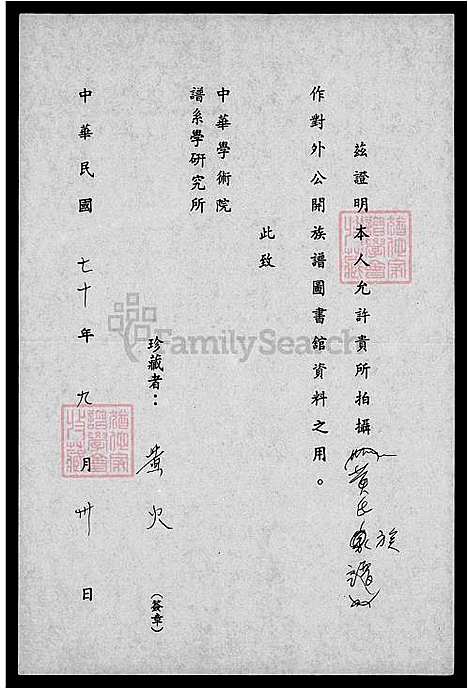 茲證明本人允許貴所拍攝黃氏族譜
作對外公開族譜圖書館資料之用。
此致
中華學術院
譜系學研究所
珍藏者：黃火
(簽章)
中華民國七十年九月卅日
FamilySearch